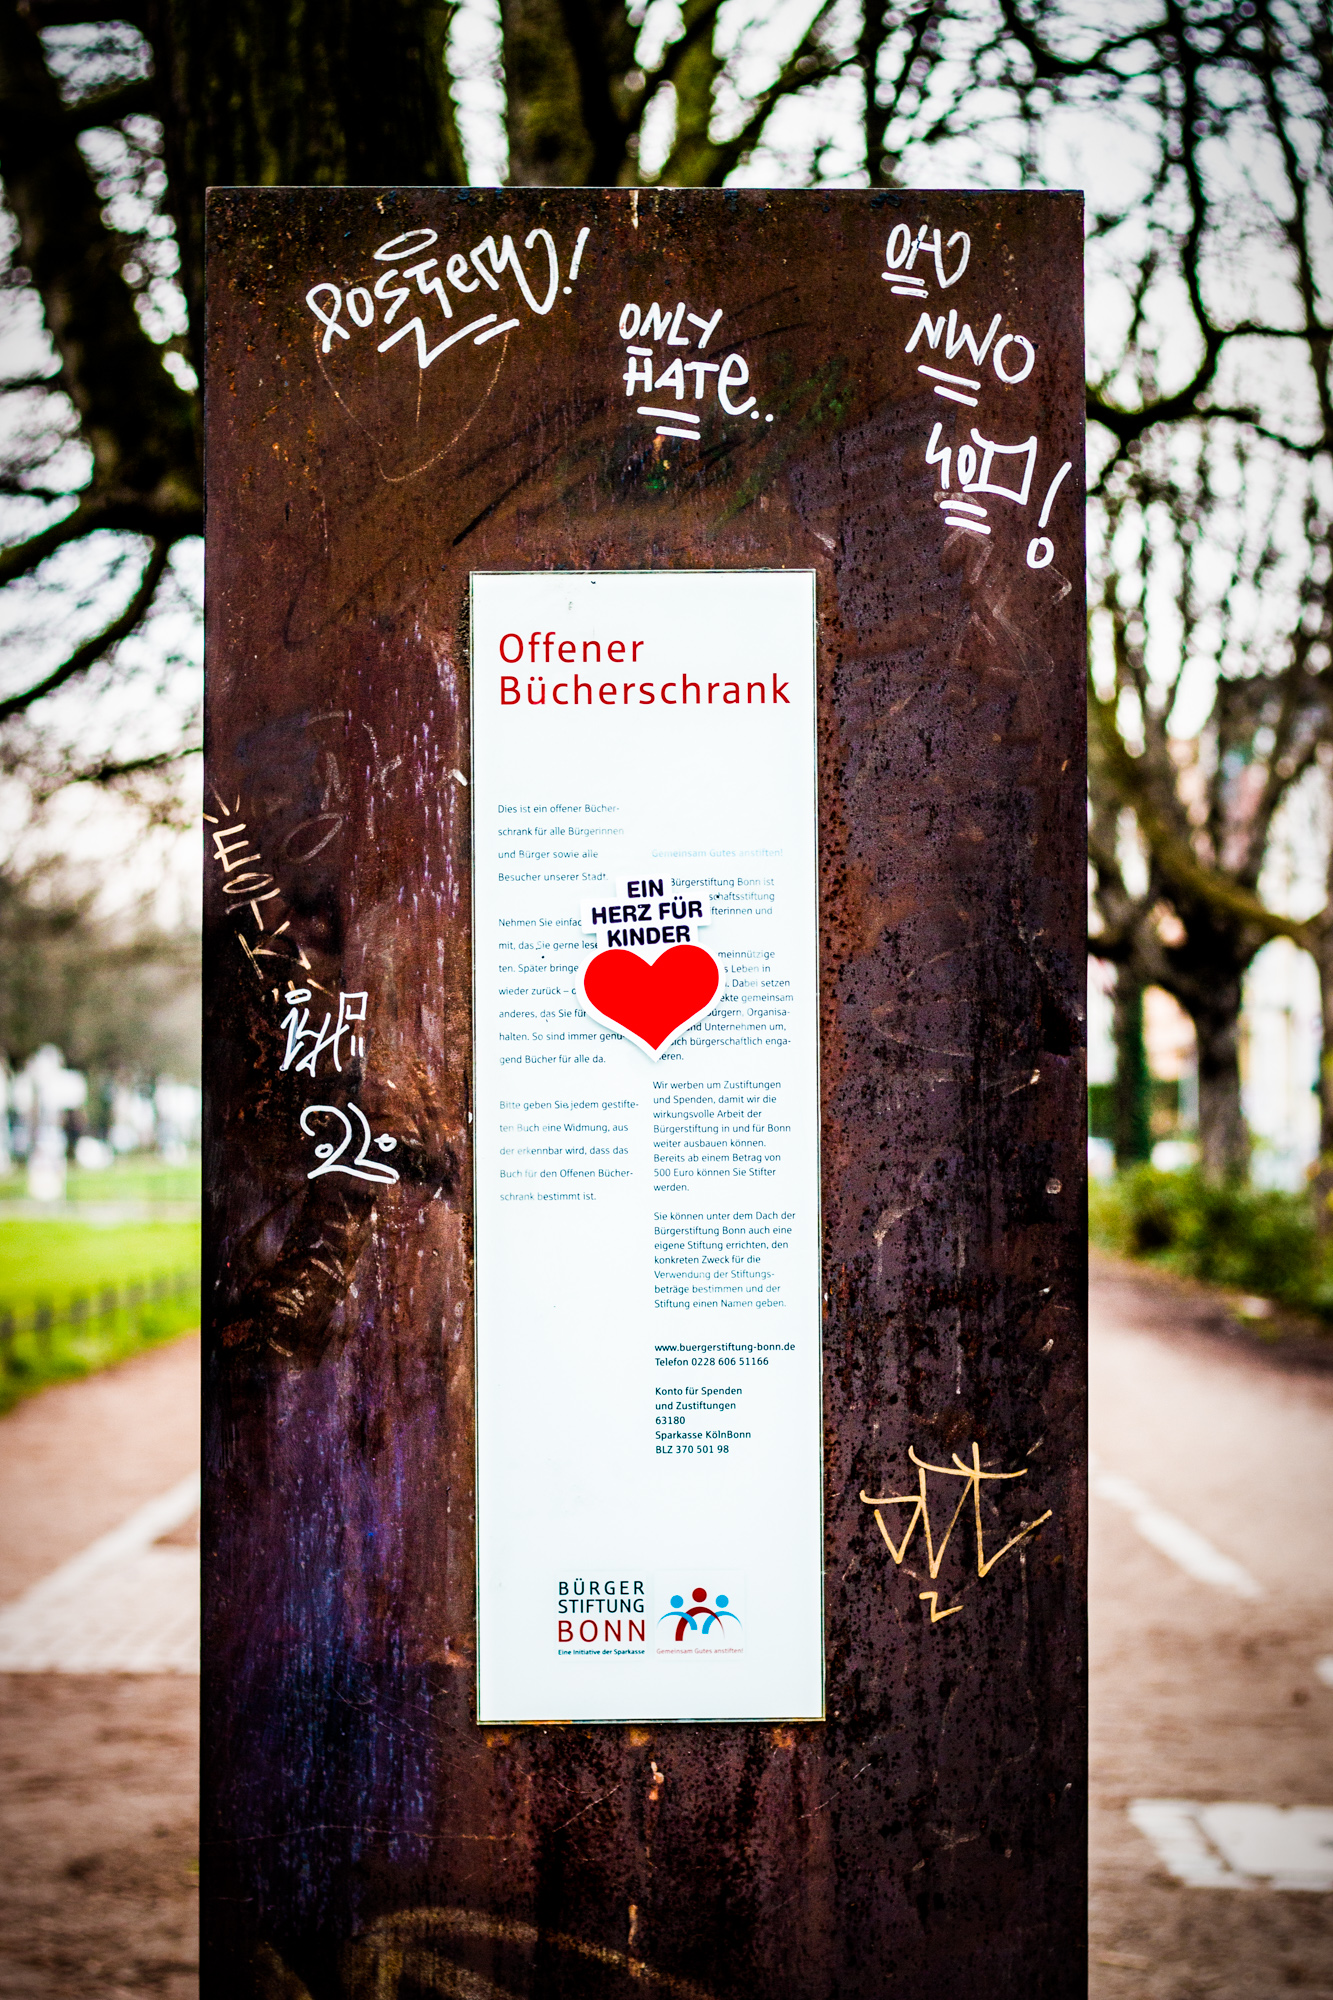 ONLY
HATE..
NWO
Offener
Bücherschrank
Dies ist ein offener Bücher-
schrank für alle Bürgerinnen
und Bürger sowie alle
Besucher unserer Stadt.
Nehmen Sie einfac
mit, das Sie gerne lese
ten. Später bringe
wieder zurück –
anderes, das Sie für
halten. So sind immer genü-
gend Bücher für alle da.
Bitte geben Sie jedem gestifte-
ten Buch eine Widmung, aus
der erkennbar wird, dass das
Buch für den Offenen Bücher-
schrank bestimmt ist.
EIN
HERZ FÜR
KINDER
Gemeinsam Gutes anstiften!
Bürgerstiftung Bonn ist
schaftsstiftung
fterinnen und
meinnützige
s Leben in
. Dabei setzen
ekte gemeinsam
ürgern, Organisa-
nd Unternehmen um,
sich bürgerschaftlich enga-
ieren.
Wir werben um Zustiftungen
und Spenden, damit wir die
wirkungsvolle Arbeit der
Bürgerstiftung in und für Bonn
weiter ausbauen können.
Bereits ab einem Betrag von
500 Euro können Sie Stifter
werden.
Sie können unter dem Dach der
Bürgerstiftung Bonn auch eine
eigene Stiftung errichten, den
konkreten Zweck für die
Verwendung der Stiftungs-
beträge bestimmen und der
Stiftung einen Namen geben.
www.buergerstiftung-bonn.de
Telefon 0228 606 51166
Konto für Spenden
und Zustiftungen
63180
Sparkasse KölnBonn
BLZ 370 501 98
BÜRGER
STIFTUNG
BONN
Eine Initiative der Sparkasse
Gemeinsam Gutes anstiften!